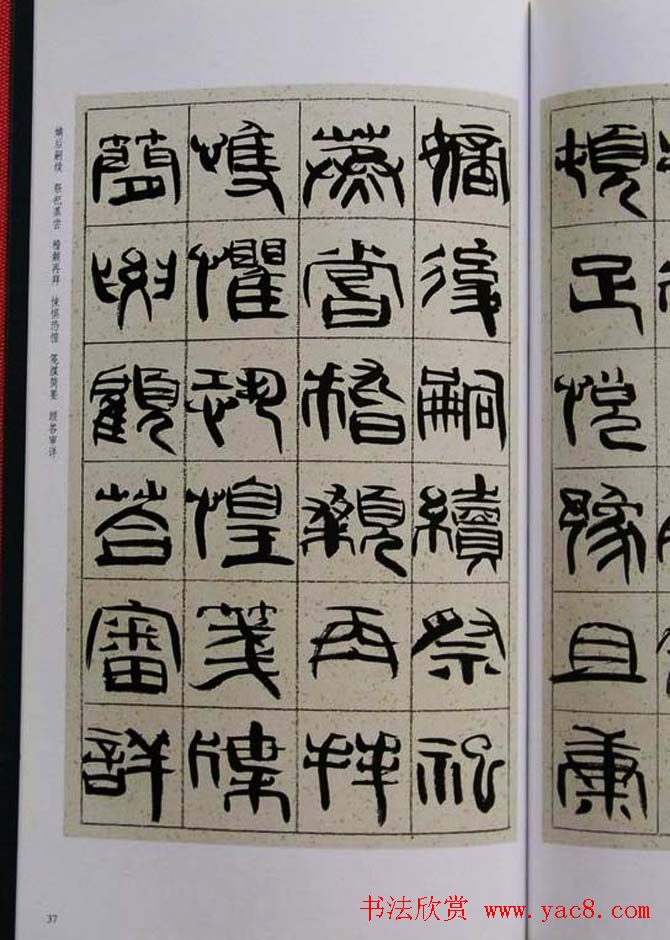 頓足悅豫且康
嫡後嗣續祭祀
蒸嘗稽顙再拜
悚懼恐惶箋牒
簡要顧荅審詳
嫡后嗣续 祭祀蒸尝 稽颡再拜 悚惧恐惶 笺牒简要 顾答审详
37
书法欣赏 www.yac8.com